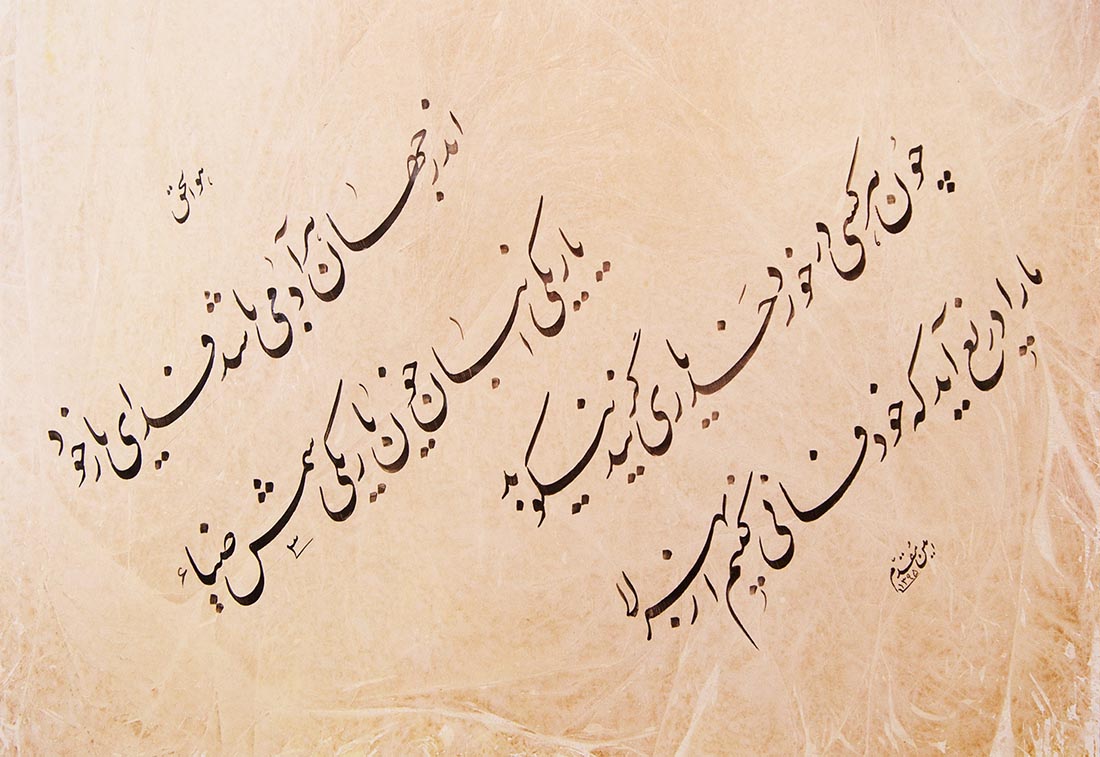 هوالحق
اندر جهان هر آدمی باشد فدای یار خود
یار یکی انبان خون یار یکی شمس ضیاء
چون هر کسی در خورد خَد یاری گزید نیک و بد
ما را دریغ آید که خود فانی کنیم از بهر لا
مقدم
۱۳۹۵